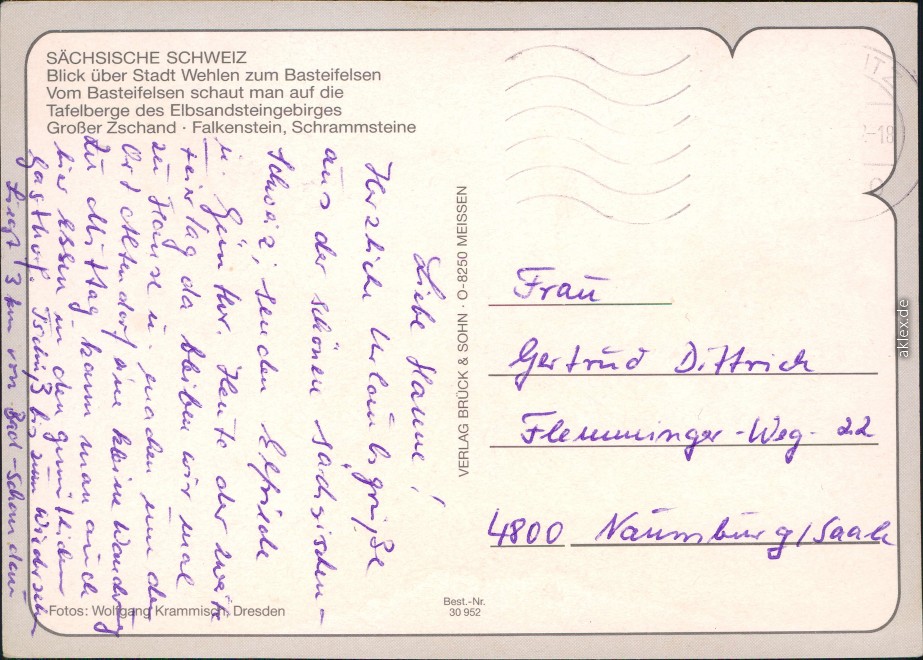 SÄCHSISCHE SCHWEIZ
Blick über Stadt Wehlen zum Basteifelsen
Vom Basteifelsen schaut man auf die
Tafelberge des Elbsandsteingebirges
Großer Zschand · Falkenstein, Schrammsteine
Liebe Hanne!
Herzliche Urlaubsgrüße
aus der schönen sächsischen
Schweiz, senden Elfriede
u. Günther. Heute der zweite
Feiertag da bleiben wir mal
zu Hause u. machen um den
Ort Altendorf eine kleine Wanderung
Zu Mittag kann man auch
hier essen in den gemütlichen
Gasthof. Tschüß bis zum Wiedersehen
Liegt 3 km von Bad-Schandau
VERLAG BRÜCK & SOHN · O-8250 MEISSEN
Frau
Gertrud Dittrich
Flemminger-Weg-22
4800 Naumburg/Saale
Fotos: Wolfgang Krammisch, Dresden
Best.-Nr.
30 952
aklex.de